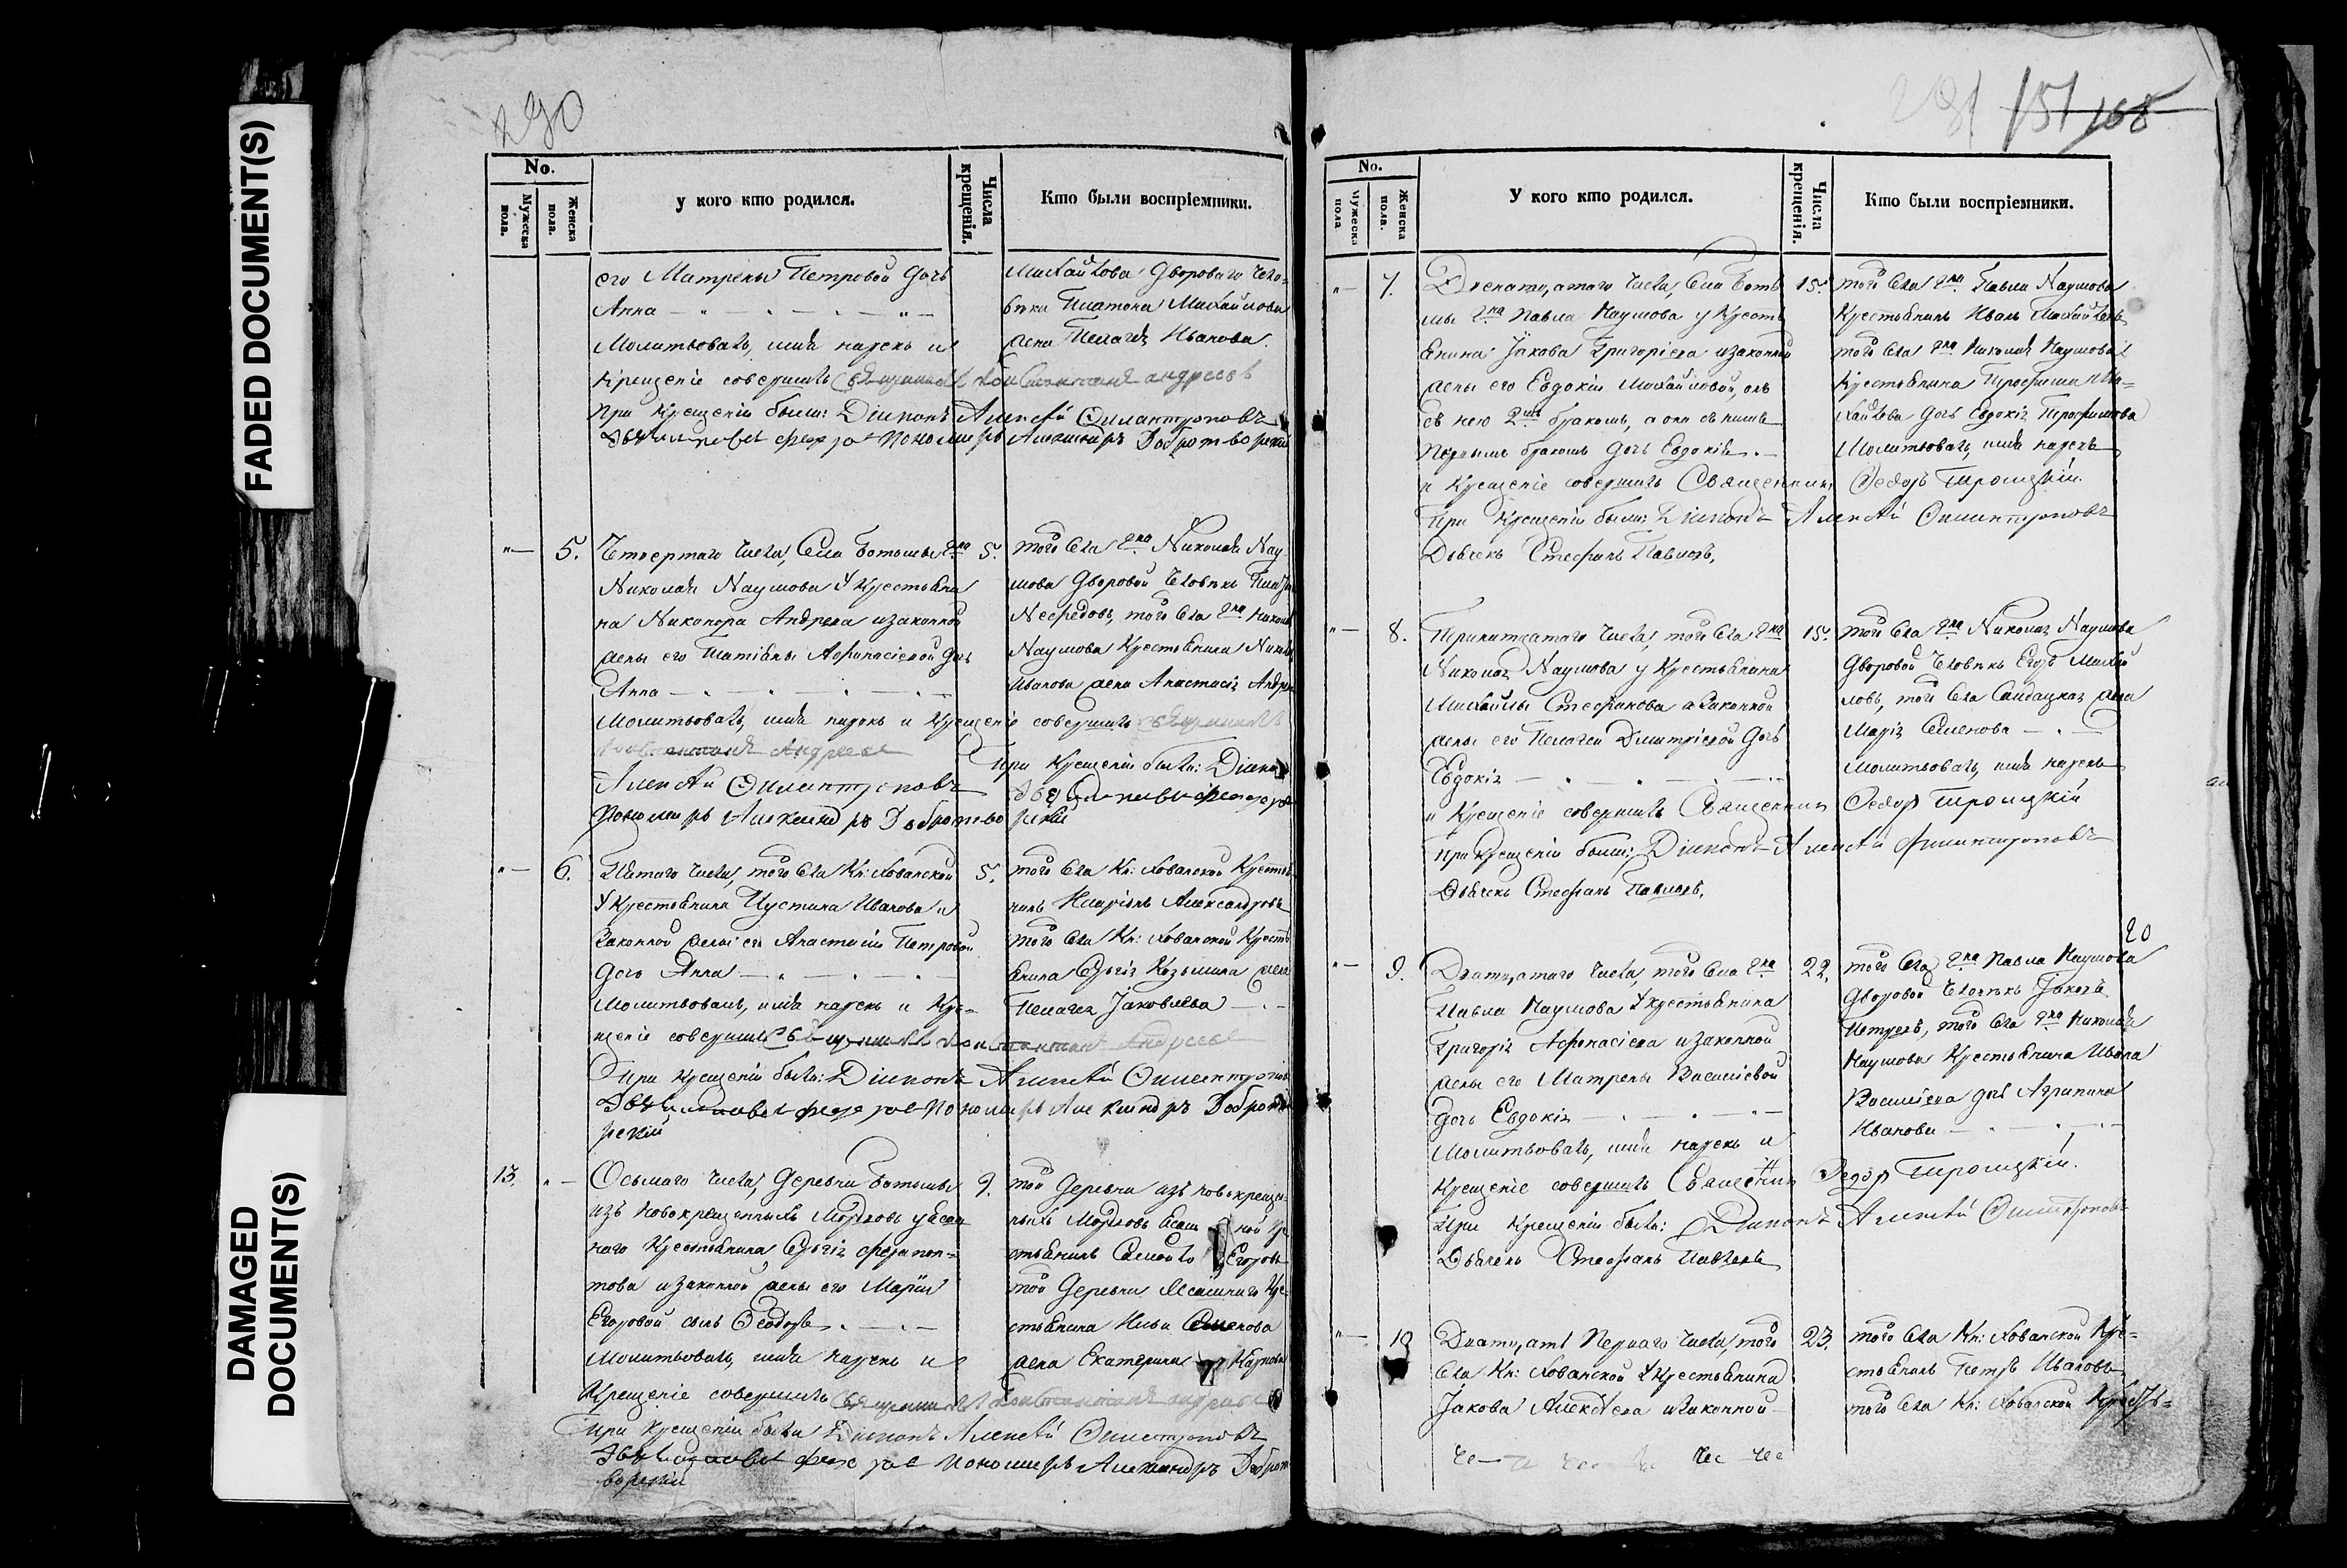 FADED DOCUMENT(S)
DAMAGED
DOCUMENT(S)
290
No.
Мужеска пола.
Женска пола.
у кого кто родился.
Числа крещенія.
Кто были воспріемники.
его Матрены Петровой дочь
Анна
Молитвовалъ, имя нарекъ и
крещеніе совершилъ Священникъ Константинъ Андреевъ
При крещеніи были: Діаконъ Алексѣй Филантроповъ
Пономарь Александръ Добротворскій
Михайлова Двороваго чело-
вѣка Платона Михайлова
жена Пелагія Иванова.
5.
Четвертаго числа, Села Ботьмы г.на
Николая Наумова у Крестьяни
на Никонора Андреева и законной
жены его Татіяны Афанасіевой дочь
Анна
Молитвовалъ, имя нарекъ и крещеніе совершилъ Священникъ
Андреевъ
При крещеніи были: Діаконъ
Алексѣй Филантроповъ
Пономарь Александръ Добротворскій
5.
того Села г.на Николая Нау
мова Дворовой человѣкъ
Нефедовъ, того Села г.на
Наумова Крестьянина
Иванова жена Анастасія
6.
Пятаго числа, того Села Кн: Хованской
у Крестьянина Иустина Иванова и
законной жены его Анастасіи Петровой
дочь Анна
Молитвовалъ, имя нарекъ и Кре-
щеніе совершилъ Священникъ Константинъ Андреевъ
При крещеніи были: Діаконъ Алексѣй Филантроповъ
Пономарь Александръ Добротво
рскій
5.
того Села Кн: Хованской Крестья
нинъ Иларіонъ Александровъ
того Села Кн: Хованской Кресть
янина Сергія Козьмина жена
Пелагея Іаковлева
13.
Осьмаго числа, Деревни Ботьмы
изъ новокрещенныхъ Мордовъ у Ясаш
наго Крестьянина Сергія Ферапон-
това и законной жены его Маріи
Егоровой сынъ Ѳеодоръ
Молитвовалъ, имя нарекъ и
Крещеніе совершилъ Священникъ Константинъ Андреевъ
При крещеніи были Діаконъ Алексѣй Филантроповъ
Пономарь Александръ Доброт
ворскій
9.
той Деревни изъ новокреще-
ныхъ Мордовъ Ясаш ной Кре
стьянинъ Егоровъ
той Деревни Ясашнаго Кре
стьянина Ильи Семенова
жена Екатерина Карпова
281 151 168
No.
Мужеска пола
Женска пола.
У кого кто родился.
Числа крещенія.
Кто были воспріемники.
7.
числа, Села Боть
мы г.на Павла Наумова у Кресть
янина Іякова Григоріева и законной
жены его Евдокіи Михайловой, онъ
съ нею 2мъ бракомъ, а она съ нимъ
первымъ бракомъ дочь Евдокія
и Крещеніе совершилъ Священникъ Ѳеодоръ Троицкій.
При Крещеніи были: Діаконъ Алексѣй Филантроповъ
Дьячекъ Стефанъ Павловъ.
15.
того Села г.на Павла Наумова
Крестьянинъ Иванъ Михайловъ
того Села г.на Николая Наумова
Крестьянина Трофима Ми-
хайлова дочь Евдокія Трофимова
Молитвовалъ, имя нарекъ
8.
Тринатцатого числа, того Села г.на
Николая Наумова у Крестьянина
Михайлы Стефанова и Законной
жены его Пелагеи Димитріевой дочь
Евдокія
и Крещеніе совершилъ Священникъ Ѳеодоръ Троицкій
При крещеніи были: Діаконъ Алексѣй Филантроповъ
Дьячекъ Стефанъ Павловъ.
15.
того Села г.на Николая Наумова
Дворовой человѣкъ Егоръ Михай
ловъ, того Села Солдацкая жена
Марія Семенова
Молитвовалъ, имя нарекъ
20
9.
Дватцатаго числа, того Села г.на
Павла Наумова у крестьянина
Григорія Афонасіева и законной
жены его Матрены Василіевой
дочь Евдокія
Молитвовалъ, имя нарекъ и
Крещеніе совершилъ Священникъ Ѳедоръ Троицкій.
При Крещеніи были: Діаконъ Алексѣй Филантроповъ
Дьячекъ Стефанъ Павловъ
22.
того Села г.на Павла Наумова
Дворовой человѣкъ Іаковъ
Петровъ, того Села г.на Николая
Наумова Крестьянина Ивана
Василіева дочь Агрипина
Иванова
10
Дватцать Перваго числа, того
Села Кн: Хованской у Крестьянина
Іакова Алексѣева и Законной
23.
того Села Кн: Хованской Кре-
стьянинъ Петръ Ивановъ
того Села Кн: Хованской Кресть-